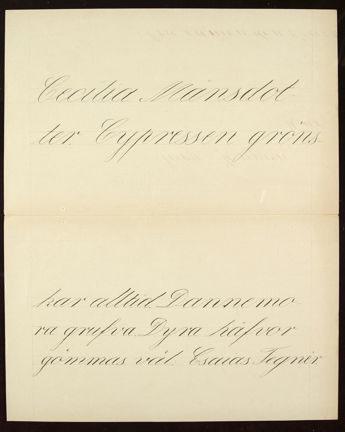 Cecilia Månsdot
ter. Cypressen gröns
kar alltid Dannemo
ra grufva. Dyra håfvor
gömmas väl. Esaias Tegnér